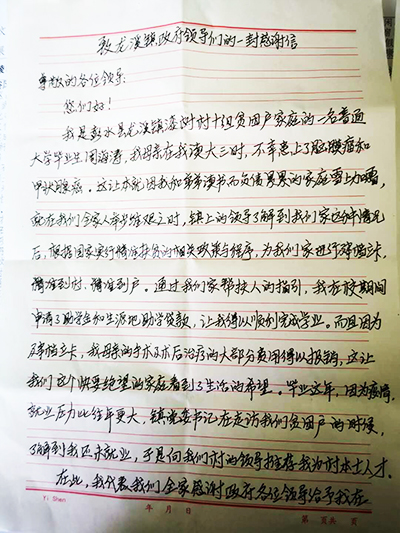 致龙溪镇政府领导们的一封感谢信
尊敬的各位领导:
您们好!
我是彭水县龙溪镇 村十组贫困户家庭的一名普通
大学毕业生周海涛,我母亲在我读大三时,不幸患上了脑膜瘤和
甲状腺癌。这让本就因我和弟弟读书而负债累累的家庭雪上加霜,
就在我们全家人举步维艰之时,镇上的领导了解到我们家这种情况
后,根据国家实行精准扶贫的相关政策与程序,为我们家进行建档立卡,
精准到村、精准到户。通过我们家帮扶人的指引,我在校期间
申请了助学金和生源地助学贷款,让我得以顺利完成学业。而且因为
建档立卡,我母亲的手术及术后治疗的大部分费用得以报销,这让
我们这个快要绝望的家庭看到了生活的希望。毕业这年,因为疫情,
就业压力比往年更大,镇党委书记在走访我们贫困户的时候,
了解到我还未就业,于是向我们村的领导推荐我为村本土人才。
在此,我代表我们全家感谢政府各位领导给予我在
Yi Shen
年 月 日
第 页共 页